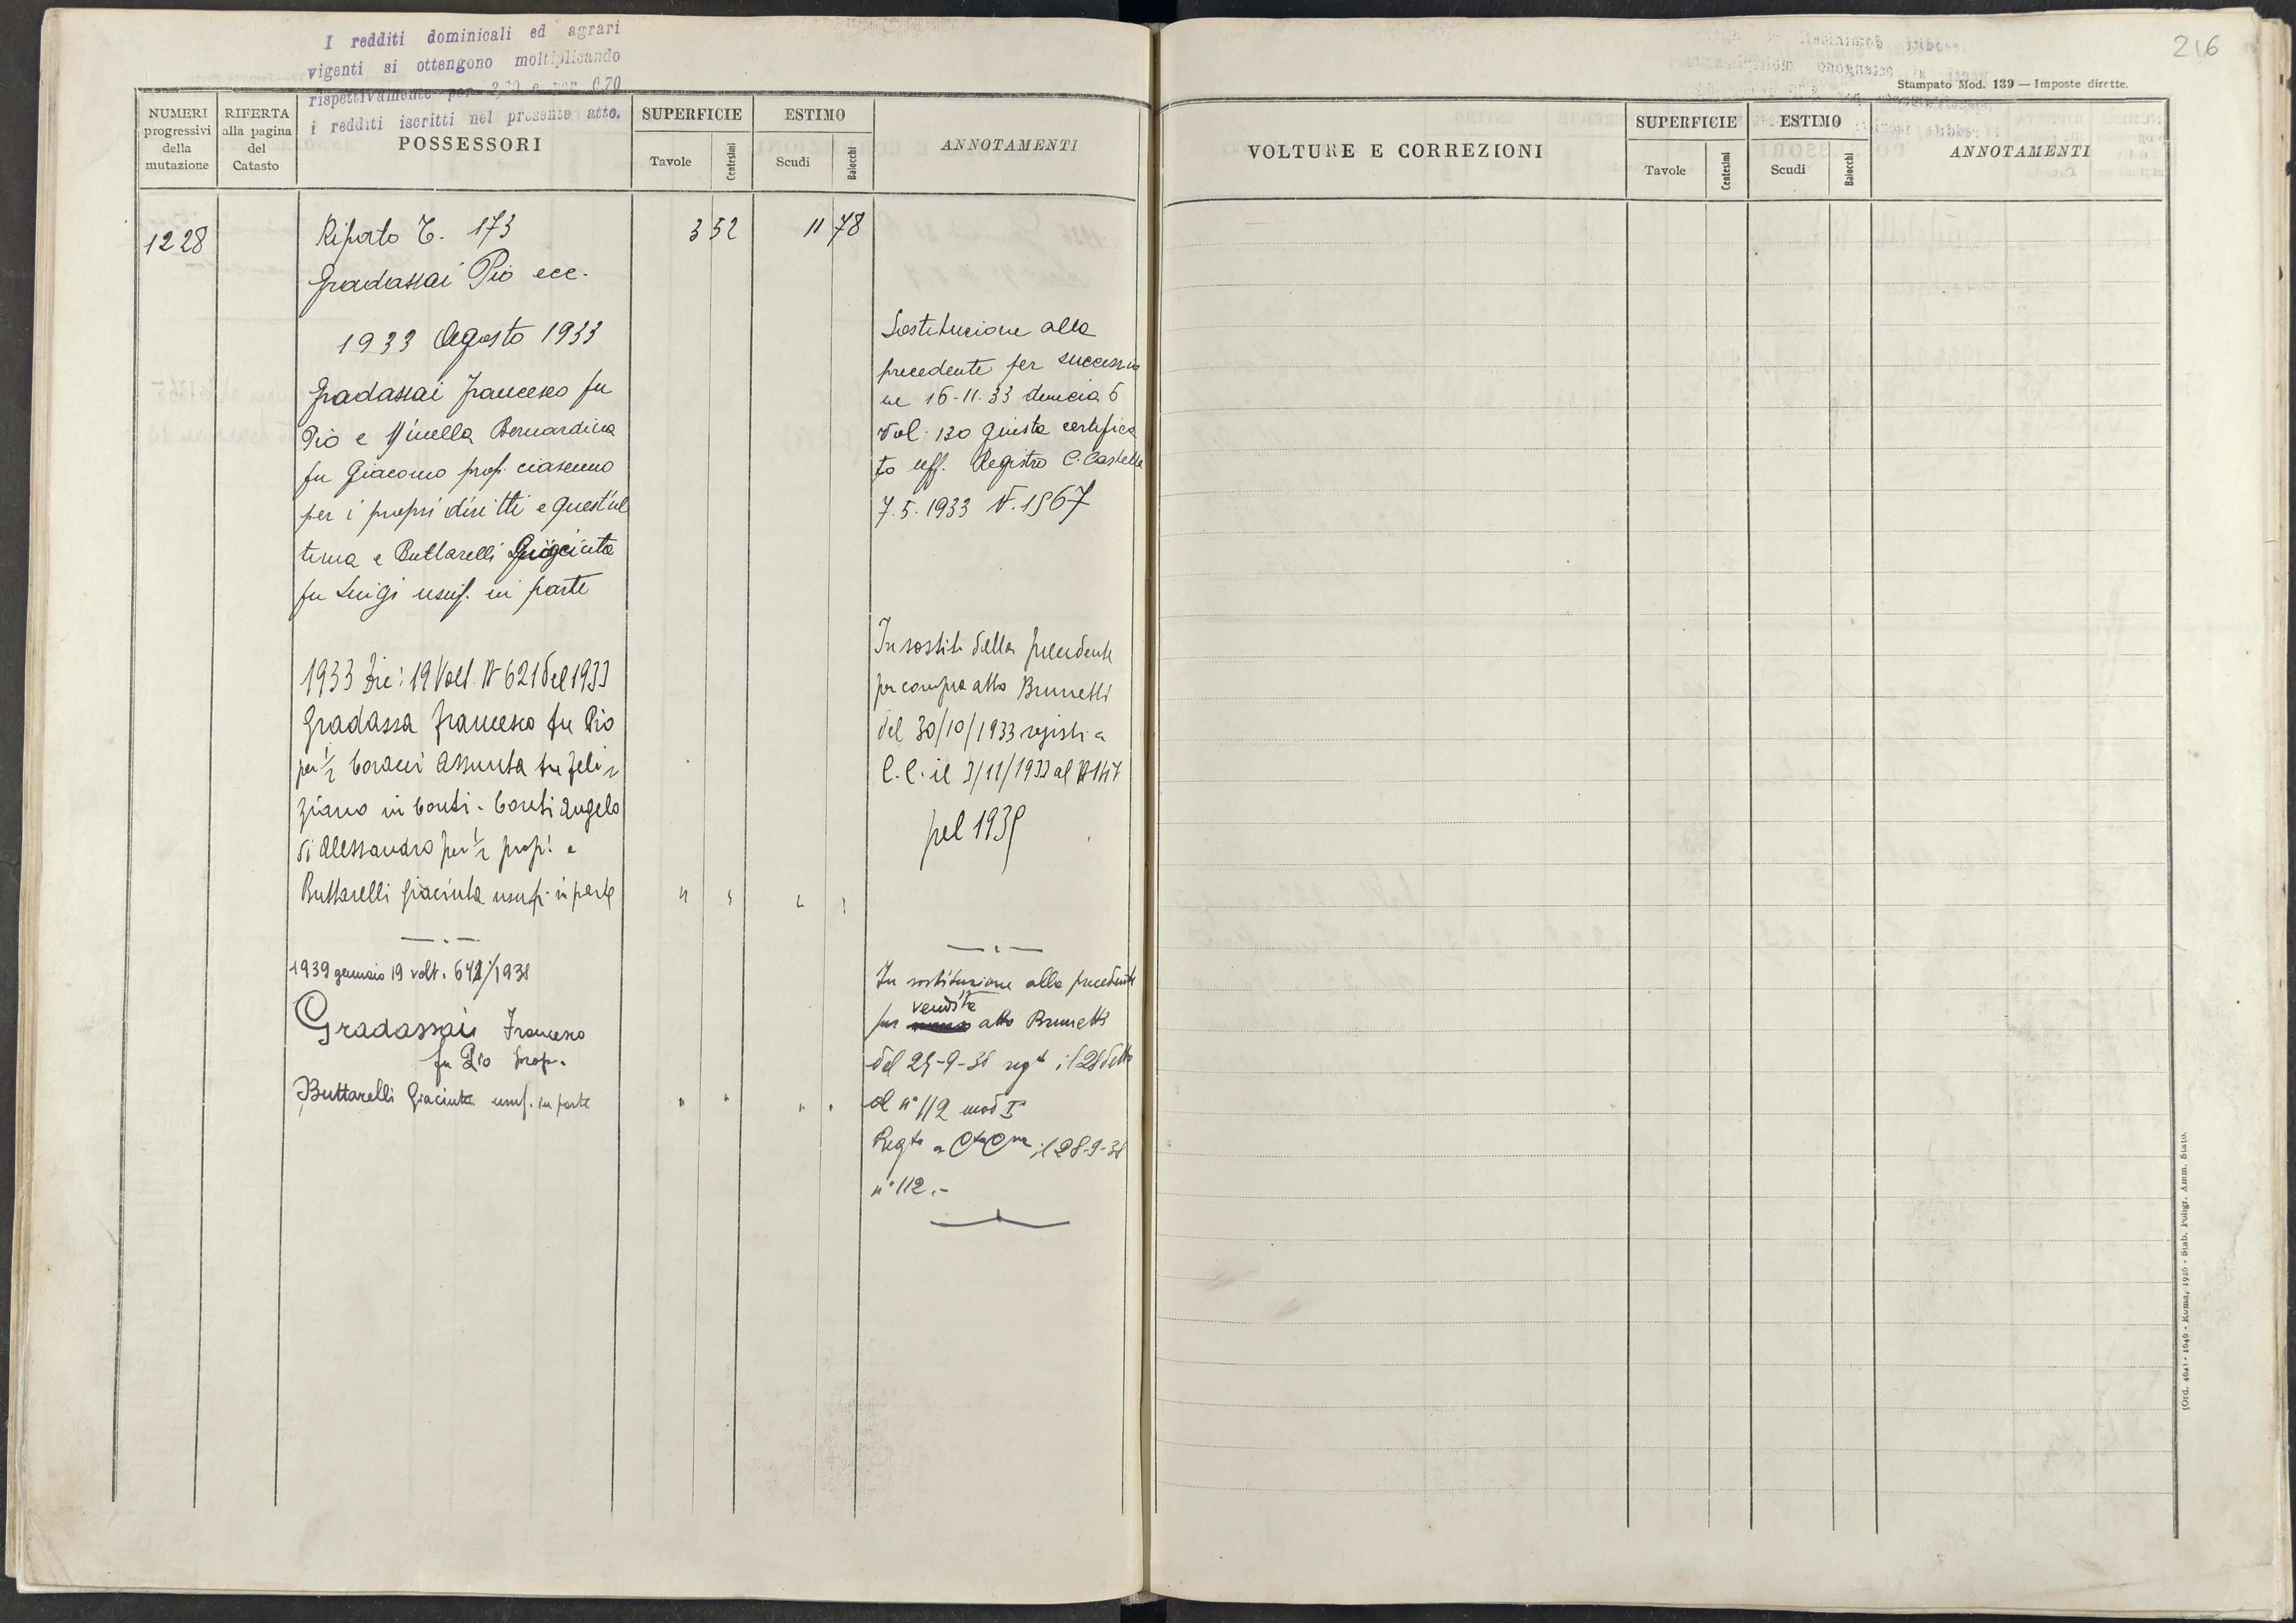 I redditi dominicali ed agrari
vigenti si ottengono moltiplicando
rispettivamente per e per 0,70
i redditi iscritti nel presente atto.
NUMERI progressivi della mutazione
RIFERTA alla pagina del Catasto
POSSESSORI
SUPERFICIE
Tavole
Centesimi
ESTIMO
Scudi
Baiocchi
ANNOTAMENTI
1228
Riporto T. 173
3 52
11 78
Gradassai Pio ecc.
1933 Agosto 1933
Gradassai Francesco fu
Pio e Minella Bernardina
fu Giacomo prop. ciascuno
per i propri diritti e quest'ul
tima e Buttarelli Giacinta
fu Luigi usuf. in parte
Sostituzione alla
precedente per successio
ne 16-11-33 denuncia 6
Vol. 130 giusta certifica
to uff. Registro C. Castello
7.5.1933 N. 1967
1933 Dic: 19 Volt. N 621 del 1933
Gradassa Francesco fu Pio
per 1/2 Coracci Assunta fu Feli
ziano in Conti - Conti Angelo
di Alessandro per 1/2 prop! e
Buttarelli Giacinta usuf. in parte
" " " "
In sostit. della precedente
per compra atto Brunetti
del 30/10/1933 registr. a
C.C. il 3/11/1933 al N 447
pel 1935
1939 gennaio 19 volt. 641/1938
Gradassai Francesco
fu Pio prop.
Buttarelli Giacinta usuf. in parte
" " " "
In sostituzione alla precedente
vendita
per atto Brunetti
del 25-9-38 regto il 28 detto
al n° 112 mod I°
Regto a il 28-9-38
n° 112.-
216
Stampato Mod. 139 — Imposte dirette.
VOLTURE E CORREZIONI
SUPERFICIE
Tavole
Centesimi
ESTIMO
Scudi
Baiocchi
ANNOTAMENTI
Roma, 1926 - Stab. Poligr. Amm. Stato.